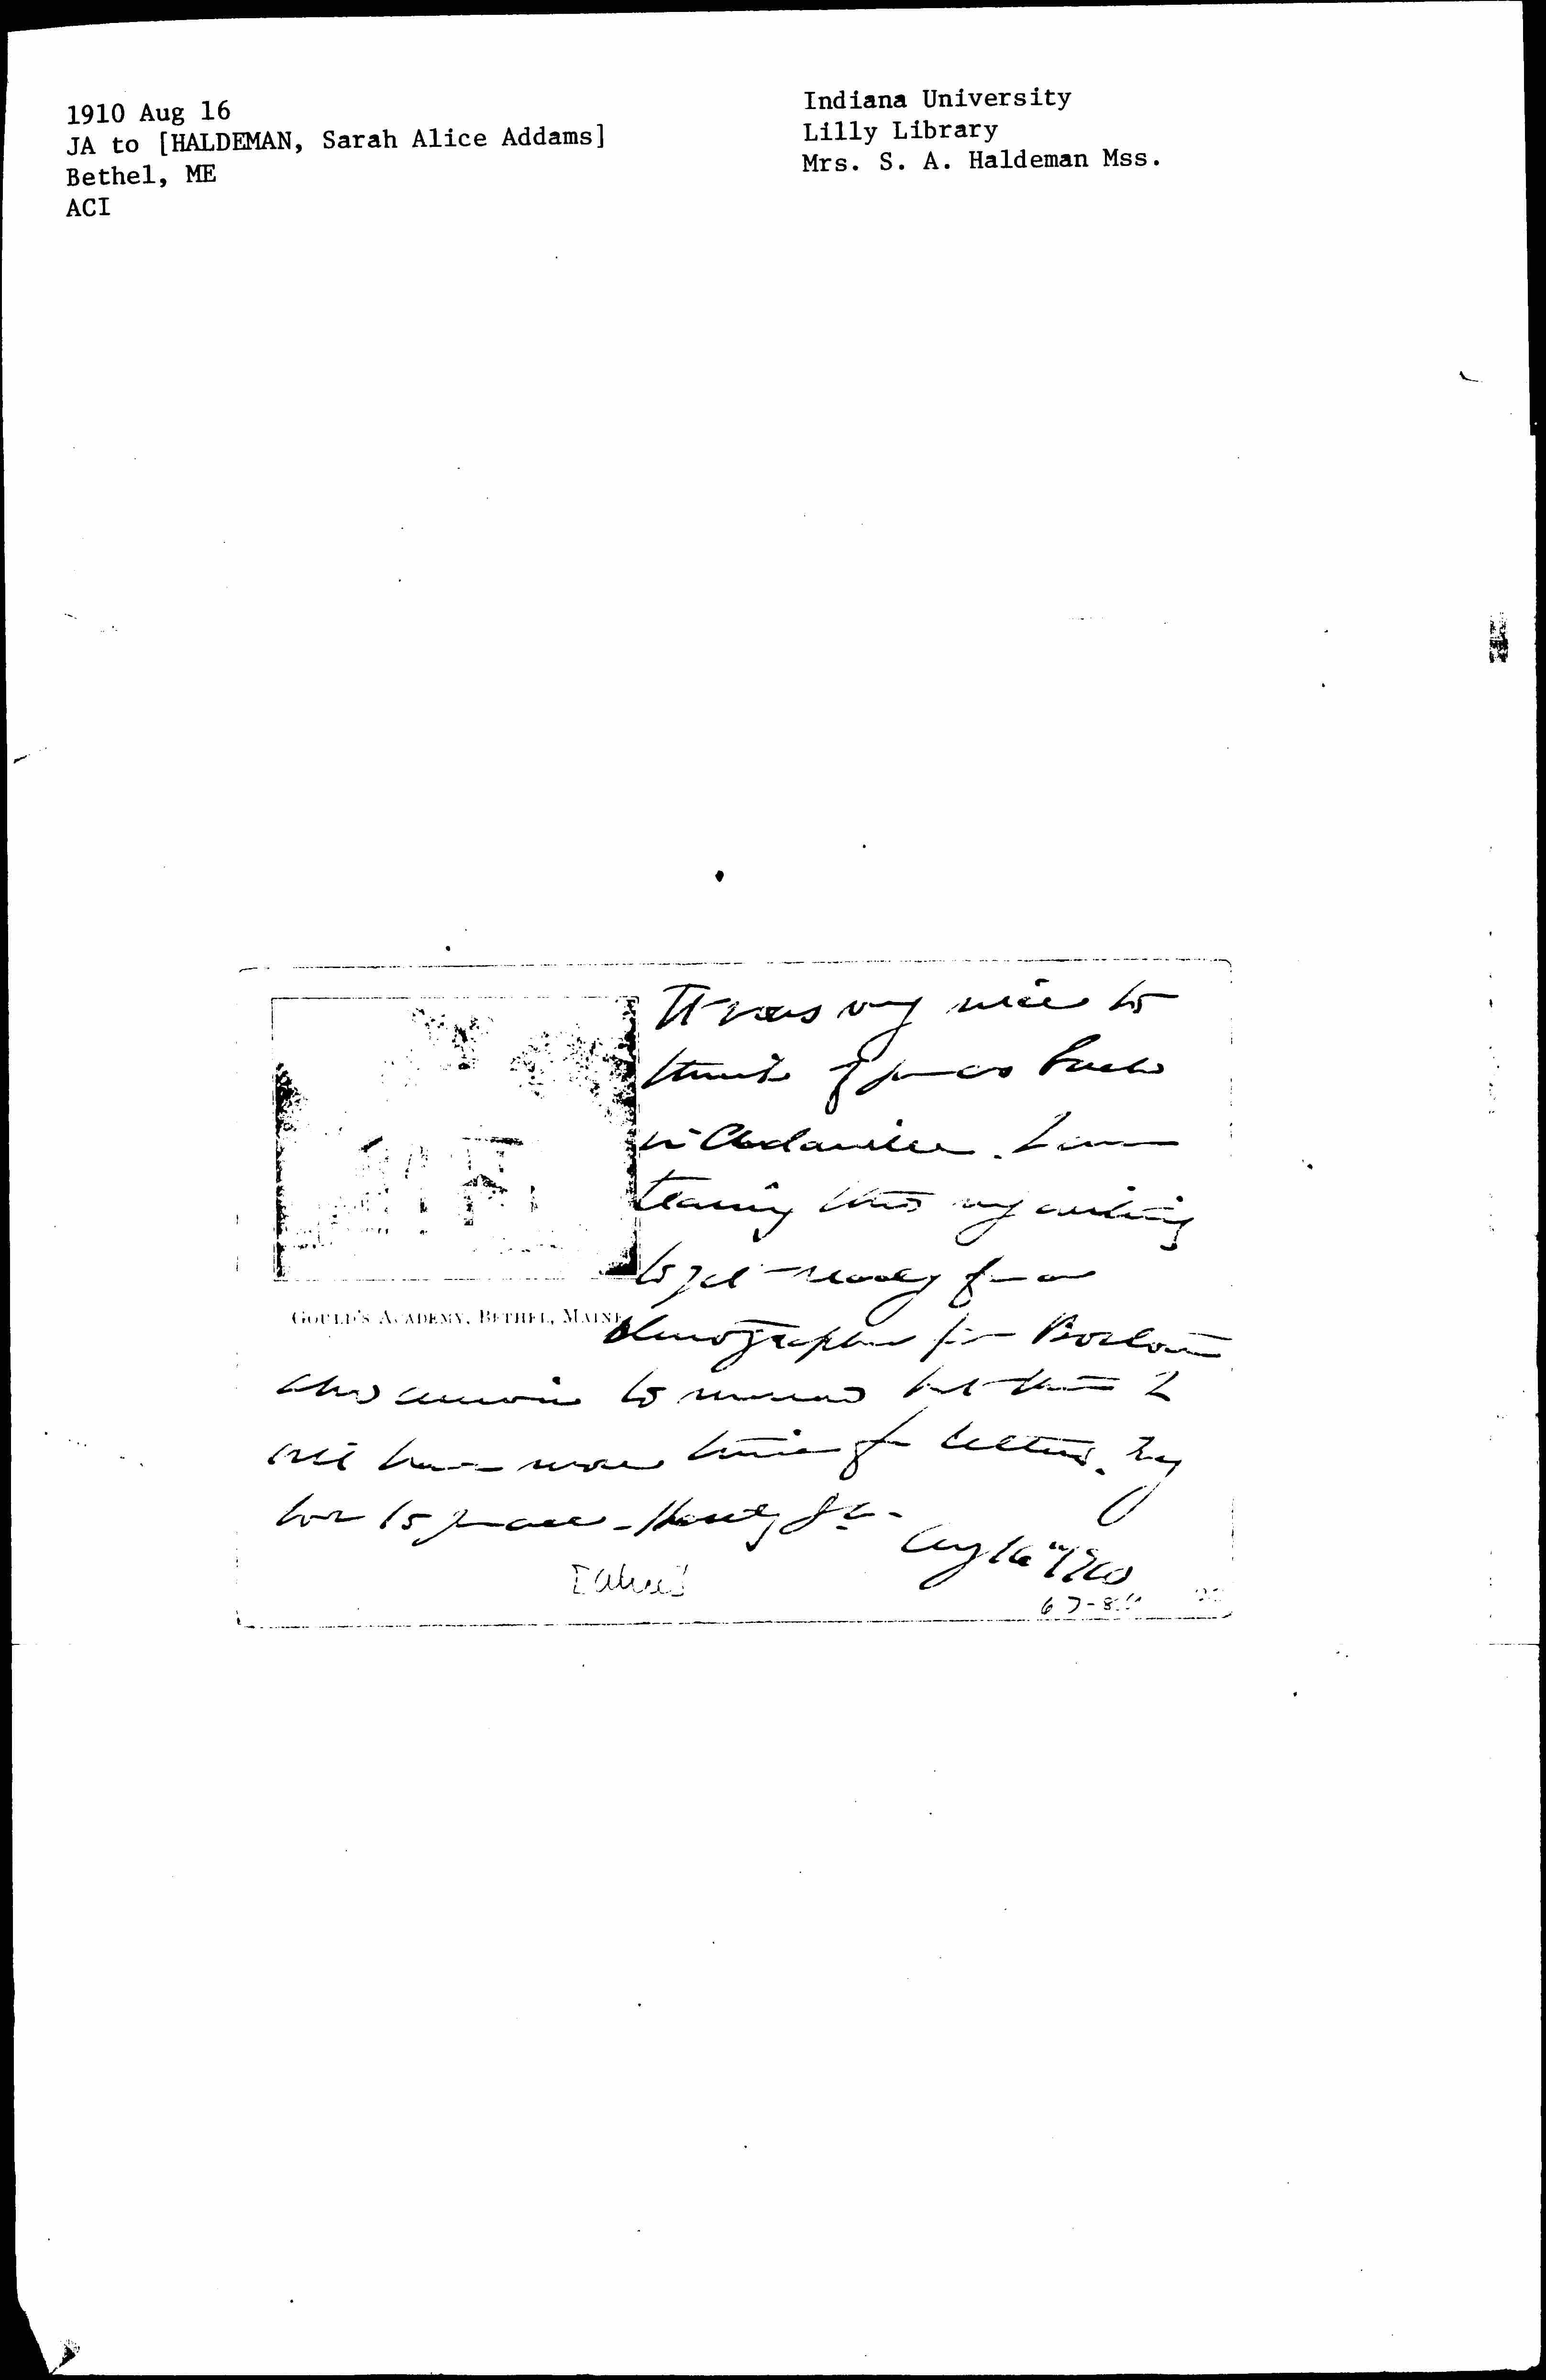 1910 Aug 16
JA to [HALDEMAN, Sarah Alice Addams]
Bethel, ME
ACI
Indiana University
Lilly Library
Mrs. S. A. Haldeman Mss.
It was very nice to
think of you as back
in Cedarville. I am
tearing thro my writing
to get ready for a
GOULD'S ACADEMY, BETHEL, MAINE
stenographer from Boston
who to but then I
will have more time for letters. My
love to you all - Hastily J A -
Aug 16" 1910
[Alice]